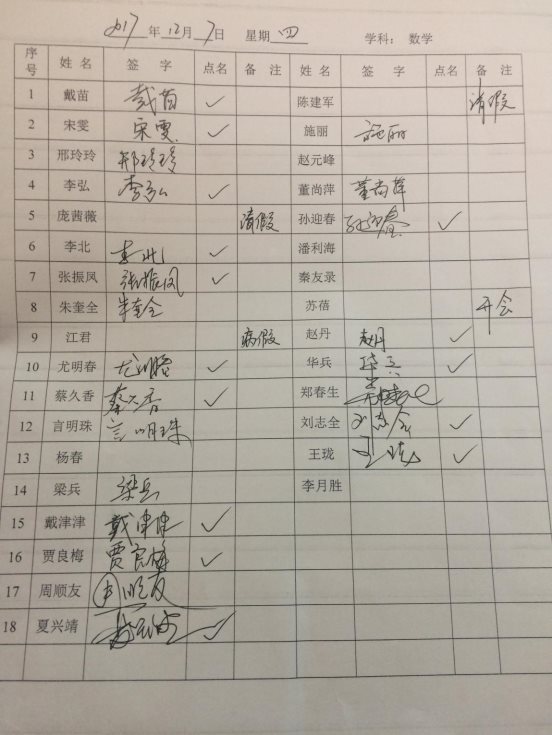 2017 年 12 月 7 日 星期 四 学科： 数学
序号 姓名 签字 点名 备注 姓名 签字 点名 备注
1 戴苗 戴苗 ✓ 陈建军 请假
2 宋雯 宋雯 ✓ 施丽 施丽
3 邢玲玲 邢玲玲 赵元峰
4 李弘 李弘 ✓ 董尚萍 董尚萍
5 庞茜薇 请假 孙迎春 孙迎春 ✓
6 李北 李北 ✓ 潘利海
7 张振凤 张振凤 ✓ 秦友录
8 朱奎全 朱奎全 苏蓓 开会
9 江君 病假 赵丹 赵丹 ✓
10 尤明春 尤明春 ✓ 华兵 华兵 ✓
11 蔡久香 蔡久香 ✓ 郑春生
12 言明珠 言明珠 刘志全 刘志全 ✓
13 杨春 王珑 王珑 ✓
14 梁兵 梁兵 李月胜
15 戴津津 戴津津 ✓
16 贾良梅 贾良梅 ✓
17 周顺友 周顺友
18 夏兴靖 ✓